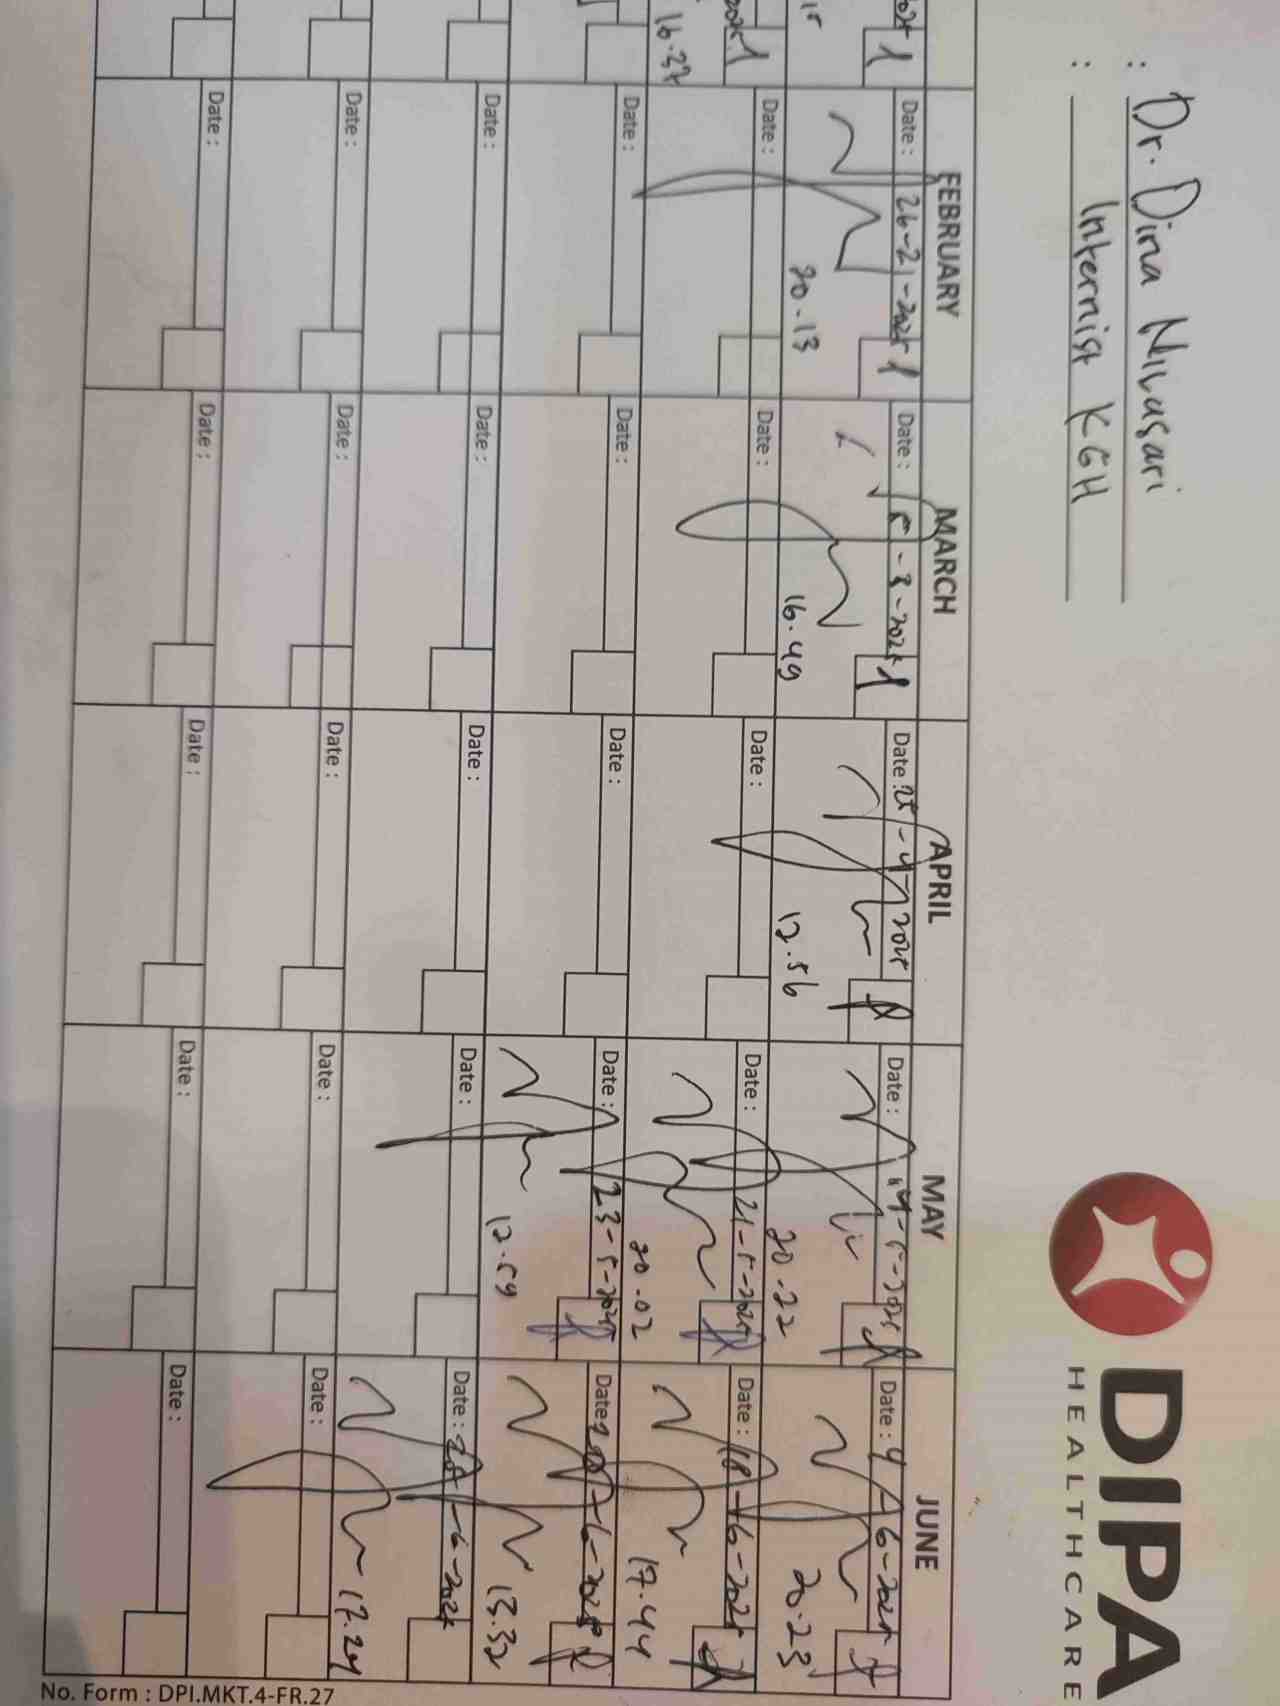 : Dr. Dina Nilasari
: Internist KGH
DIPA
HEALTHCARE
FEBRUARY
MARCH
APRIL
MAY
JUNE
Date : 26-2-2025 1
Date : 5-3-2025 1
Date : 25-4-2025
Date : 14-5-2025
Date : 4-6-2025
16.37
20.13
16.49
12.56
20.22
20.23
Date :
Date :
Date :
Date : 21-5-2025
Date : 18-6-2025
20.02
17.44
Date :
Date :
Date :
Date : 23-5-2025
Date : 20-6-2025
12.59
13.32
Date :
Date :
Date :
Date :
Date : 28-6-2025
17.24
Date :
Date :
Date :
Date :
Date :
Date :
Date :
Date :
Date :
Date :
No. Form : DPI.MKT.4-FR.27